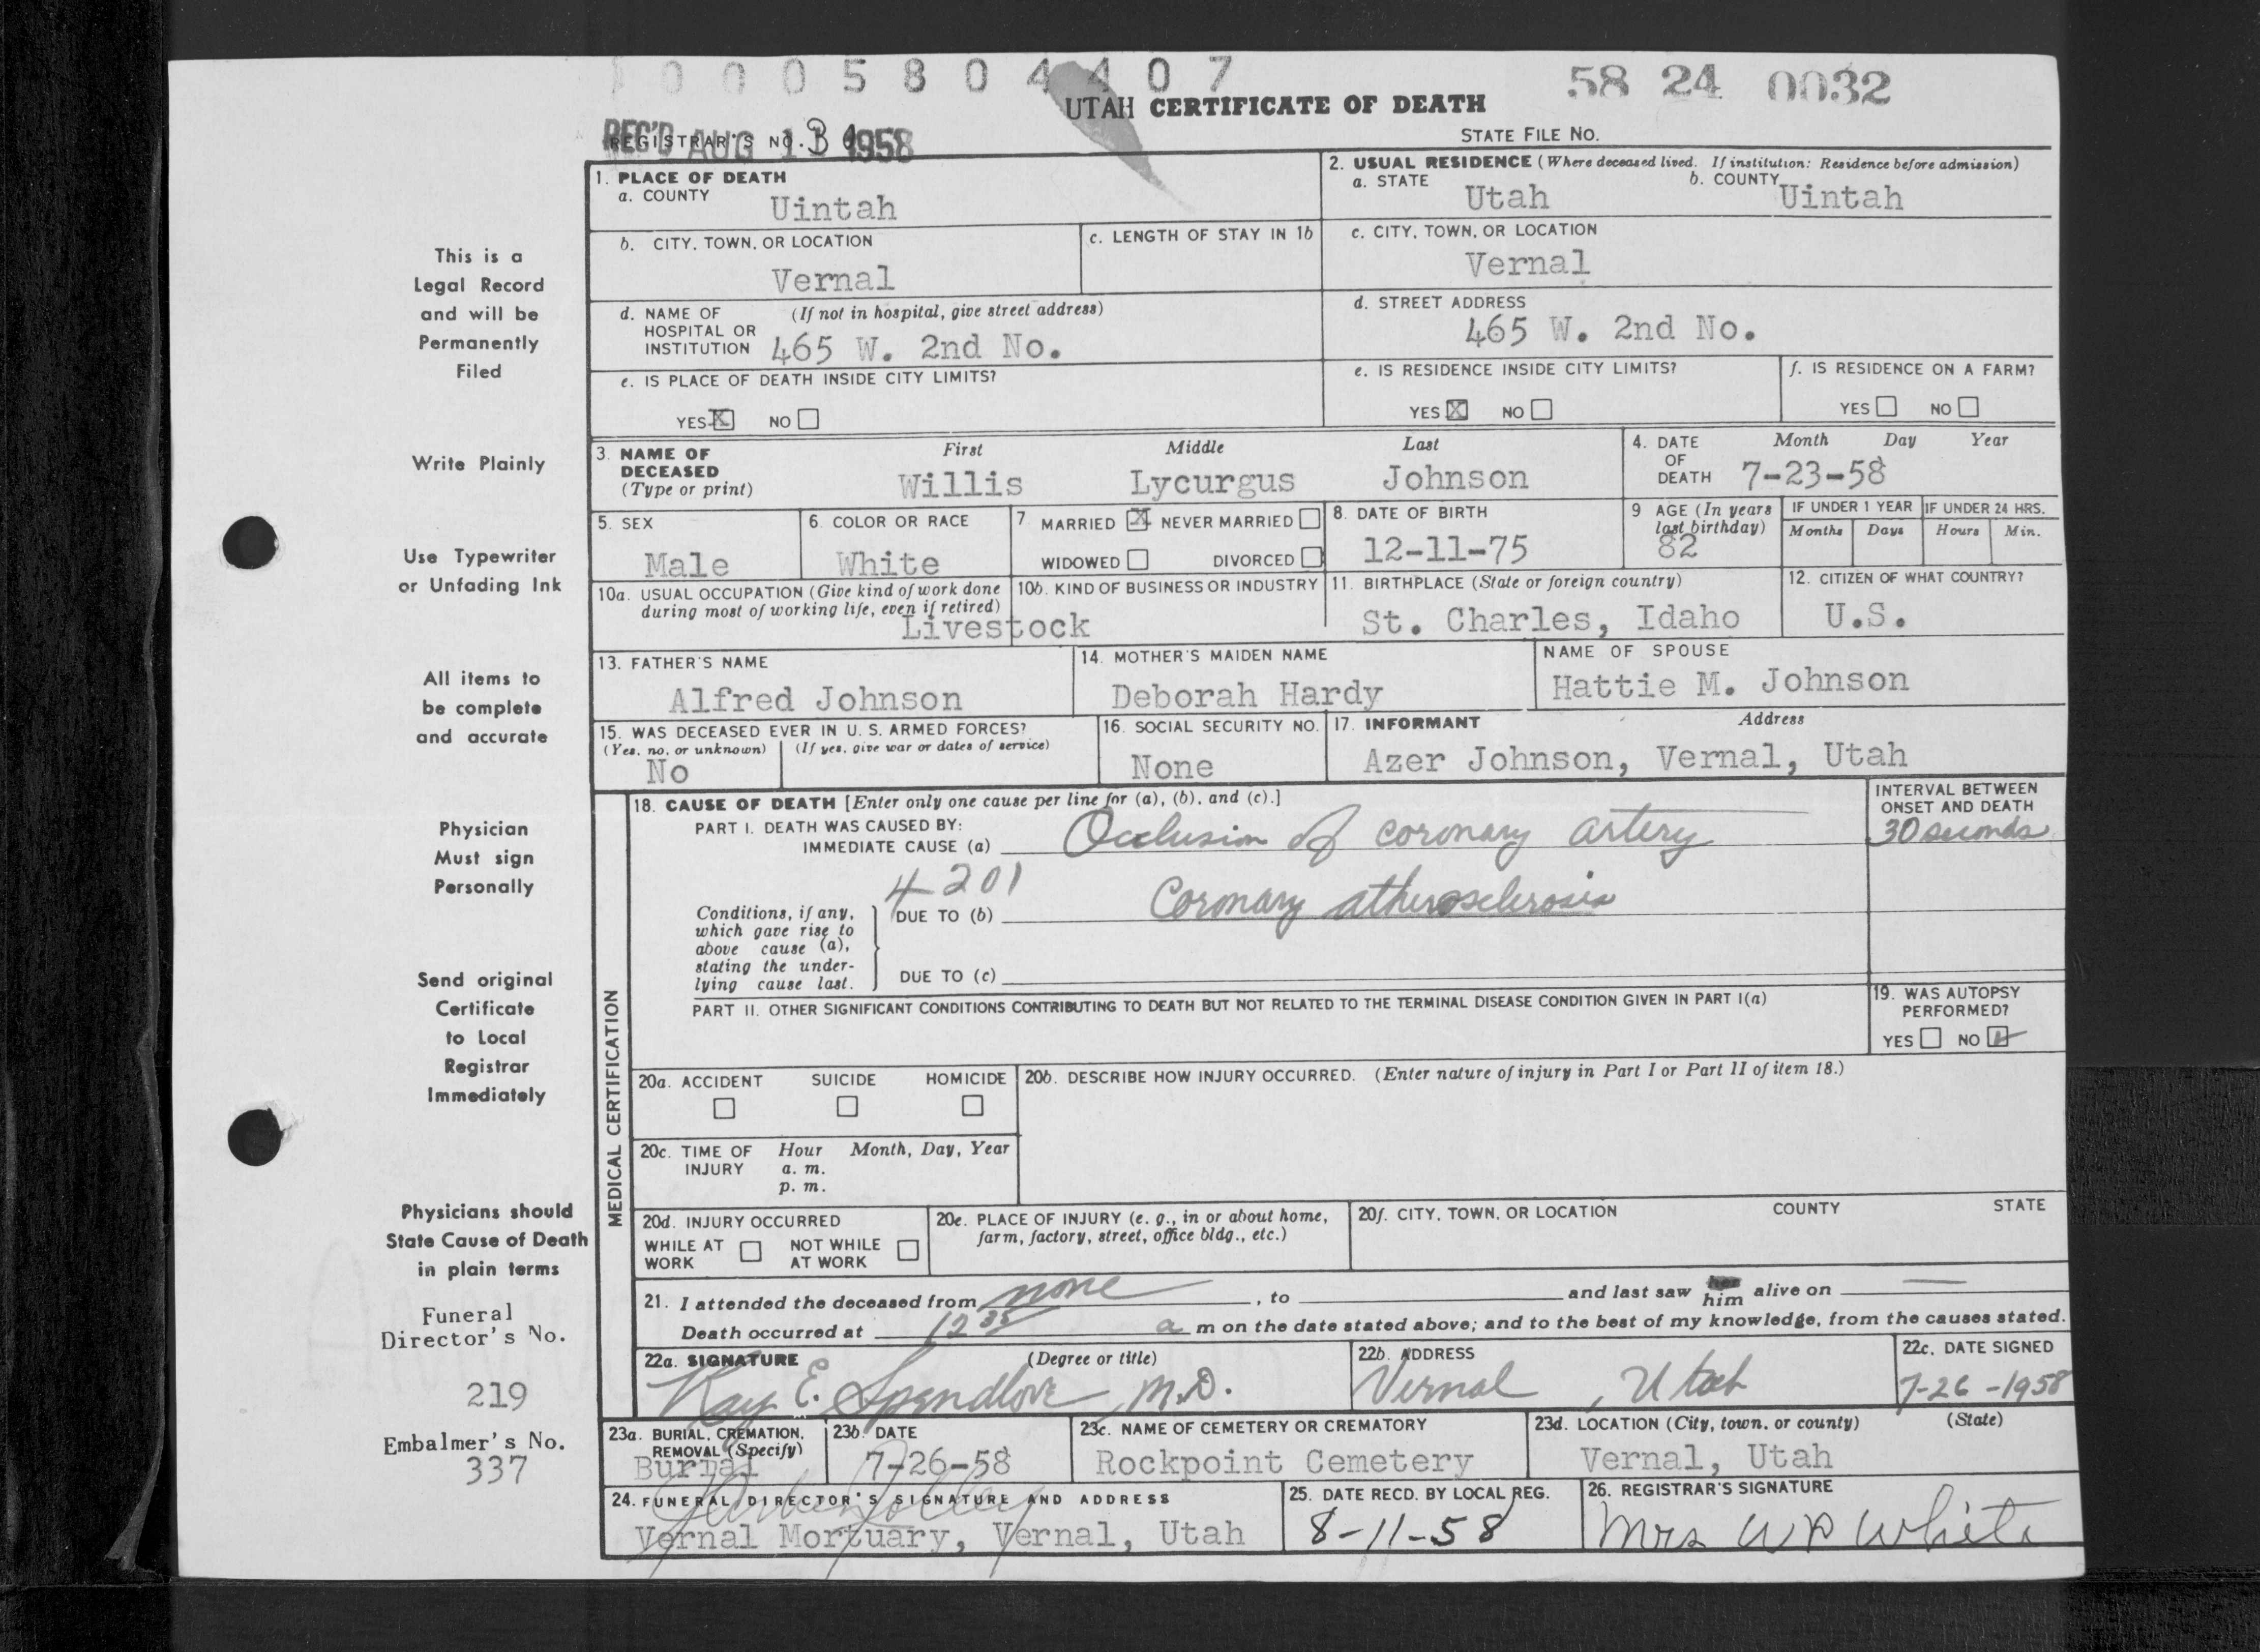 0 0 0 5 8 0 4 4 0 7
58 24 0032
UTAH CERTIFICATE OF DEATH
REC'D AUG 1958
REGISTRAR'S NO.
STATE FILE NO.
1. PLACE OF DEATH
a. COUNTY Uintah
2. USUAL RESIDENCE (Where deceased lived. If institution: Residence before admission)
a. STATE Utah b. COUNTY Uintah
b. CITY, TOWN, OR LOCATION Vernal
c. LENGTH OF STAY IN 1b
c. CITY, TOWN, OR LOCATION Vernal
d. NAME OF HOSPITAL OR INSTITUTION (If not in hospital, give street address) 465 W. 2nd No.
d. STREET ADDRESS 465 W. 2nd No.
e. IS PLACE OF DEATH INSIDE CITY LIMITS?
YES X NO
e. IS RESIDENCE INSIDE CITY LIMITS?
YES X NO
f. IS RESIDENCE ON A FARM?
YES NO
3. NAME OF DECEASED (Type or print)
First Middle Last
Willis Lycurgus Johnson
4. DATE OF DEATH Month Day Year
7-23-58
5. SEX Male
6. COLOR OR RACE White
7 MARRIED X NEVER MARRIED
WIDOWED DIVORCED
8. DATE OF BIRTH 12-11-75
9 AGE (In years last birthday) 82
IF UNDER 1 YEAR Months Days
IF UNDER 24 HRS. Hours Min.
10a. USUAL OCCUPATION (Give kind of work done during most of working life, even if retired)
10b. KIND OF BUSINESS OR INDUSTRY
Livestock
11. BIRTHPLACE (State or foreign country)
St. Charles, Idaho
12. CITIZEN OF WHAT COUNTRY?
U.S.
13. FATHER'S NAME
Alfred Johnson
14. MOTHER'S MAIDEN NAME
Deborah Hardy
NAME OF SPOUSE
Hattie M. Johnson
15. WAS DECEASED EVER IN U. S. ARMED FORCES?
(Yes, no, or unknown) (If yes, give war or dates of service)
No
16. SOCIAL SECURITY NO.
None
17. INFORMANT Address
Azer Johnson, Vernal, Utah
MEDICAL CERTIFICATION
18. CAUSE OF DEATH [Enter only one cause per line for (a), (b), and (c).]
INTERVAL BETWEEN ONSET AND DEATH
PART I. DEATH WAS CAUSED BY:
IMMEDIATE CAUSE (a) Occlusion of coronary artery
30 seconds
4201
Conditions, if any, which gave rise to above cause (a), stating the underlying cause last.
DUE TO (b) Coronary atherosclerosis
DUE TO (c)
PART II. OTHER SIGNIFICANT CONDITIONS CONTRIBUTING TO DEATH BUT NOT RELATED TO THE TERMINAL DISEASE CONDITION GIVEN IN PART I(a)
19. WAS AUTOPSY PERFORMED?
YES NO
20a. ACCIDENT SUICIDE HOMICIDE
20b. DESCRIBE HOW INJURY OCCURRED. (Enter nature of injury in Part I or Part II of item 18.)
20c. TIME OF INJURY Hour Month, Day, Year
a. m.
p. m.
20d. INJURY OCCURRED
WHILE AT WORK NOT WHILE AT WORK
20e. PLACE OF INJURY (e. g., in or about home, farm, factory, street, office bldg., etc.)
20f. CITY, TOWN, OR LOCATION COUNTY STATE
21. I attended the deceased from none , to and last saw him alive on —
Death occurred at 12 35 a m on the date stated above; and to the best of my knowledge, from the causes stated.
22a. SIGNATURE (Degree or title)
Kay E. Spendlove M.D.
22b. ADDRESS
Vernal, Utah
22c. DATE SIGNED
7-26-1958
23a. BURIAL, CREMATION, REMOVAL (Specify)
Burial
23b. DATE
7-26-58
23c. NAME OF CEMETERY OR CREMATORY
Rockpoint Cemetery
23d. LOCATION (City, town, or county) (State)
Vernal, Utah
24. FUNERAL DIRECTOR'S SIGNATURE AND ADDRESS
Vernal Mortuary, Vernal, Utah
25. DATE RECD. BY LOCAL REG.
8-11-58
26. REGISTRAR'S SIGNATURE
Mrs W P White
This is a
Legal Record
and will be
Permanently
Filed
Write Plainly
Use Typewriter
or Unfading Ink
All items to
be complete
and accurate
Physician
Must sign
Personally
Send original
Certificate
to Local
Registrar
Immediately
Physicians should
State Cause of Death
in plain terms
Funeral
Director's No.
219
Embalmer's No.
337